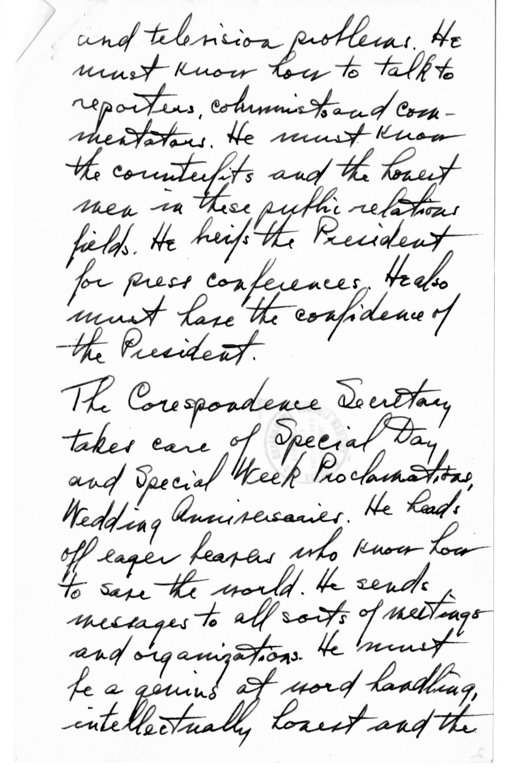 and television problems. He
must know how to talk to
reporters, columnists and com-
mentators. He must know
the counterfits and the honest
men in these public relations
fields. He briefs the President
for press conferences. He also
must have the confidence of
the President.
The Corespondence Secretary
takes care of Special Day
and Special Week Proclamations,
Wedding Anniversaries. He heads
off eager beavers who know how
to save the world. He sends
messages to all sorts of meetings
and organizations. He must
be a genius at word handling,
intellectually honest and the